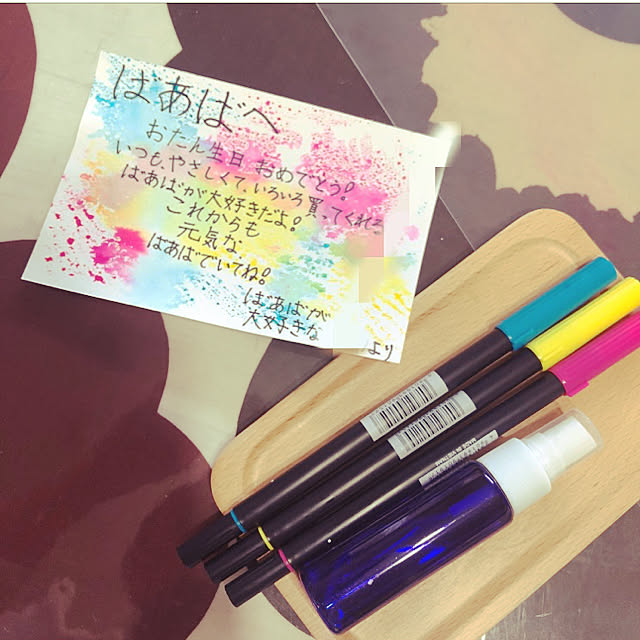 ばあばへ
おたん生日 おめでとう!
いつも、やさしくて、いろいろ買ってくれる
ばあばが大好きだよ!
これからも
元気な
ばあばでいてね!
ばあばが
大好きな
より